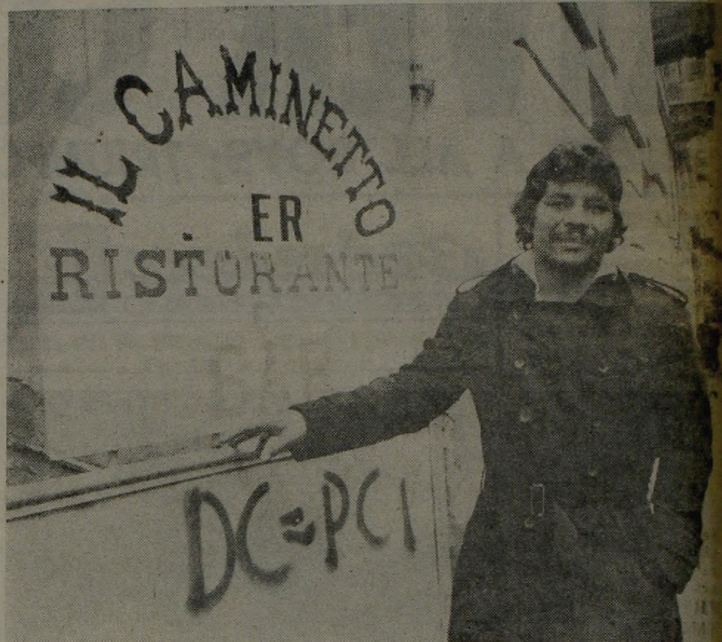 IL CAMINETTO
ER
RISTORANTE
DC=PCI